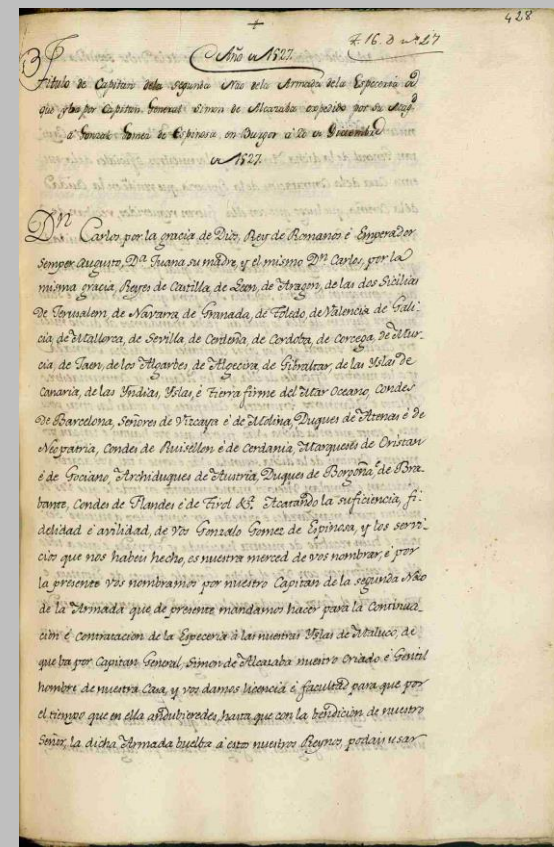 428
Año de 1527.
Titulo de Capitan dela segunda Nao dela Armada dela Especeria de
que yba por Capitan General Simon de Alcazaba expedido por su Magd
à Gonzalo Gomez de Espinosa, en Burgos à 20 de Diciembre
de 1527.
Dn Carlos, por la gracia de Dios, Rey de Romanos é Emperador
semper augusto, Da Juana su madre, y el mismo Dn Carlos, por la
misma gracia, Reyes de Castilla, de Leon, de Aragon, de las dos Sicilias
de Jerusalem, de Navarra, de Granada, de Toledo, de Valencia, de Gali-
cia, de Mallorca, de Sevilla, de Cerdeña, de Cordoba, de Corcega, de Mur-
cia, de Jaen, de los Algarbes, de Algecira, de Gibraltar, de las Yslas de
Canaria, de las Yndias, Yslas, é Tierra firme del Mar Oceano, Condes
de Barcelona, Señores de Vizcaya é de Molina, Duques de Atenas é de
Neopatria, Condes de Ruisellon é de Cerdania, Marqueses de Oristan
é de Gociano, Archiduques de Austria, Duques de Borgoña é de Bra-
bante, Condes de Flandes é de Tirol &a. Acatando la suficiencia, fi-
delidad é avilidad, de vos Gonzalo Gomez de Espinosa, y los servi-
cios que nos habeis hecho, es nuestra merced de vos nombrar, é por
la presente vos nombramos por nuestro Capitan de la segunda Nao
de la Armada que de presente mandamos hacer para la Continua-
cion é contratacion de la Especeria à las nuestras Yslas de Maluco, de
que ba por Capitan General, Simon de Alcazaba nuestro Criado é Gentil
hombre de nuestra Casa, y vos damos licencia é facultad para que por
el tiempo que en ella andubieredes, hasta que con la bendicion de nuestro
Señor, la dicha Armada buelba à estos nuestros Reynos, podais usar